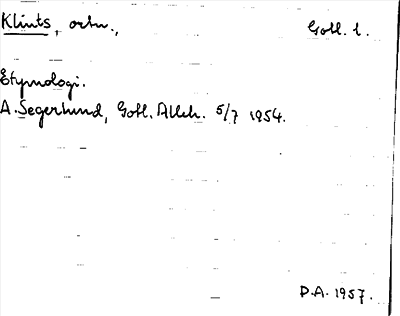 Klints, ortn., Gotl. l.
Etymologi.
A. Segerlund, Gotl. Alleh. 5/7 1954.
D.A. 1957.